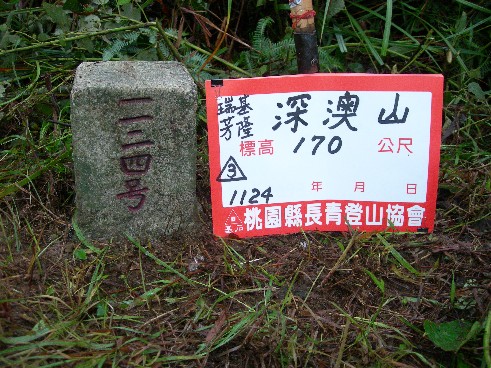 一一二四號
瑞基
芳隆
深澳山
標高 170 公尺
3
1124 年 月 日
桃園縣長青登山協會